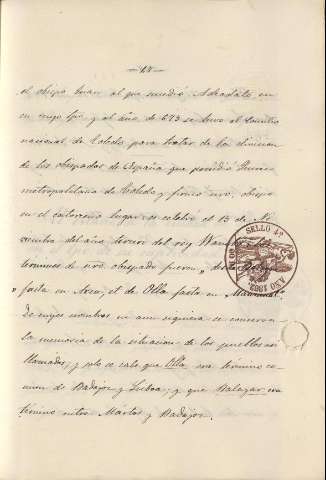 — 18 —
el obispo Juan al que sucedió Adeodato en
en cuyo tpo. y al año de 673 se tuvo el Concilio
nacional de Toledo para tratar de la division
de los obispados de España que presidió
metropolitano de Toledo y firmó nro. obispo
en el catorceno lugar: se celebró el 15 de
del año tercero del rey Wamba: los
terminos de nro. obispado fueron, de
" fasta en et de Olla fasta en
De cuyos nombres ni aun siquiera se conserva
la memoria de la situacion de los pueblos asi
llamados, y solo se sabe que Olla era término co-
mun de Badajoz y Lisboa, y que Balagar era
término entre Mártos y Badajoz.
SELLO 4º
AÑO 1862